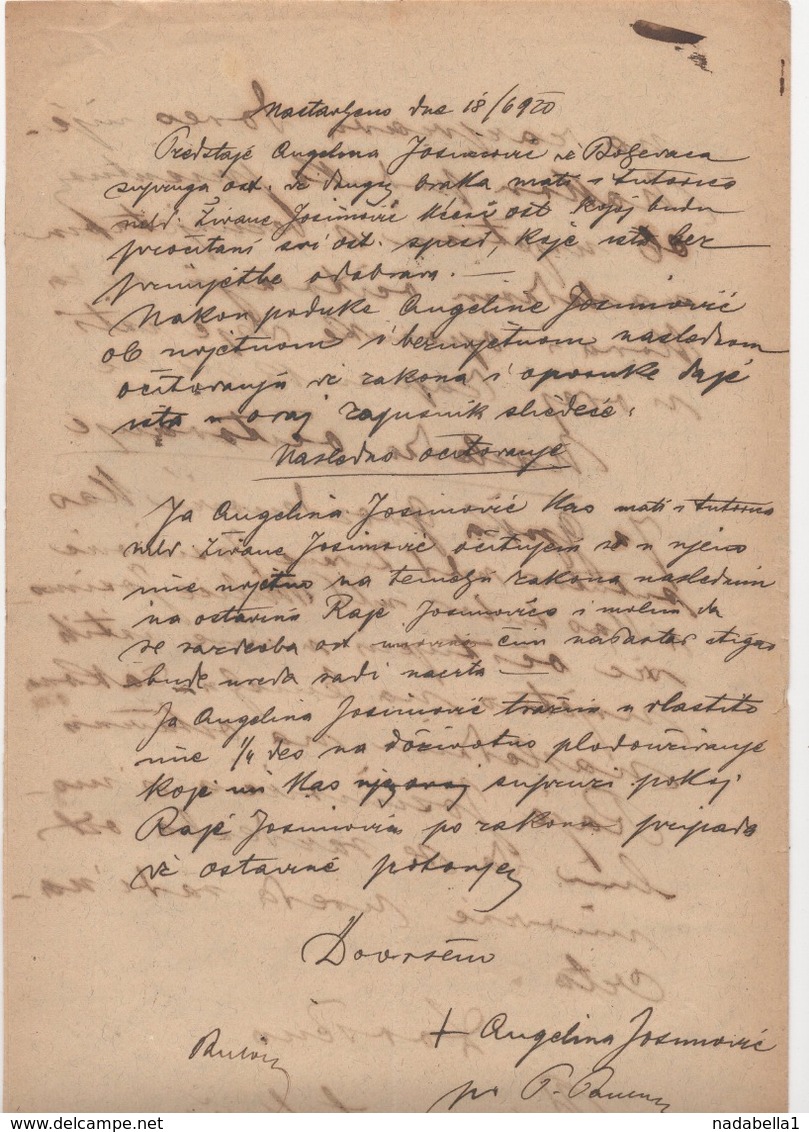 Nastavljeno dne 18/6 920
Predstaje Angelina Josimović iz Boljevaca
supruga ost. iz drugog braka mati i tutorica
mldr. Živane Josimović kćeri ost kojoj budu
pročitani svi ost. spisi, koje ista bez
primjetbe odobrava. —
Nakon poduke Angeline Josimović
ob uvjetnom i bezuvjetnom naslednom
očitovanju iz zakona i oporuke daje
ista u ovaj zapisnik sledeće:
Nasledno očitovanje
Ja Angelina Josimović kao mati i tutorica
mldr. Živane Josimović očitujem se u njeno
ime uvjetno na temelju zakona naslednim
na ostavinu Raje Josimovića i molim da
se razdeoba od
bude ureda radi —
Ja Angelina Josimović tražim u vlastito
ime 1/4 deo na doživotno plodouživanje
koje mi kao supruzi pokoj
Raje Josimovića po zakonu pripada
iz ostavine potonjeg
Dovršeno
+ Angelina Josimović
po P.
nadabella1